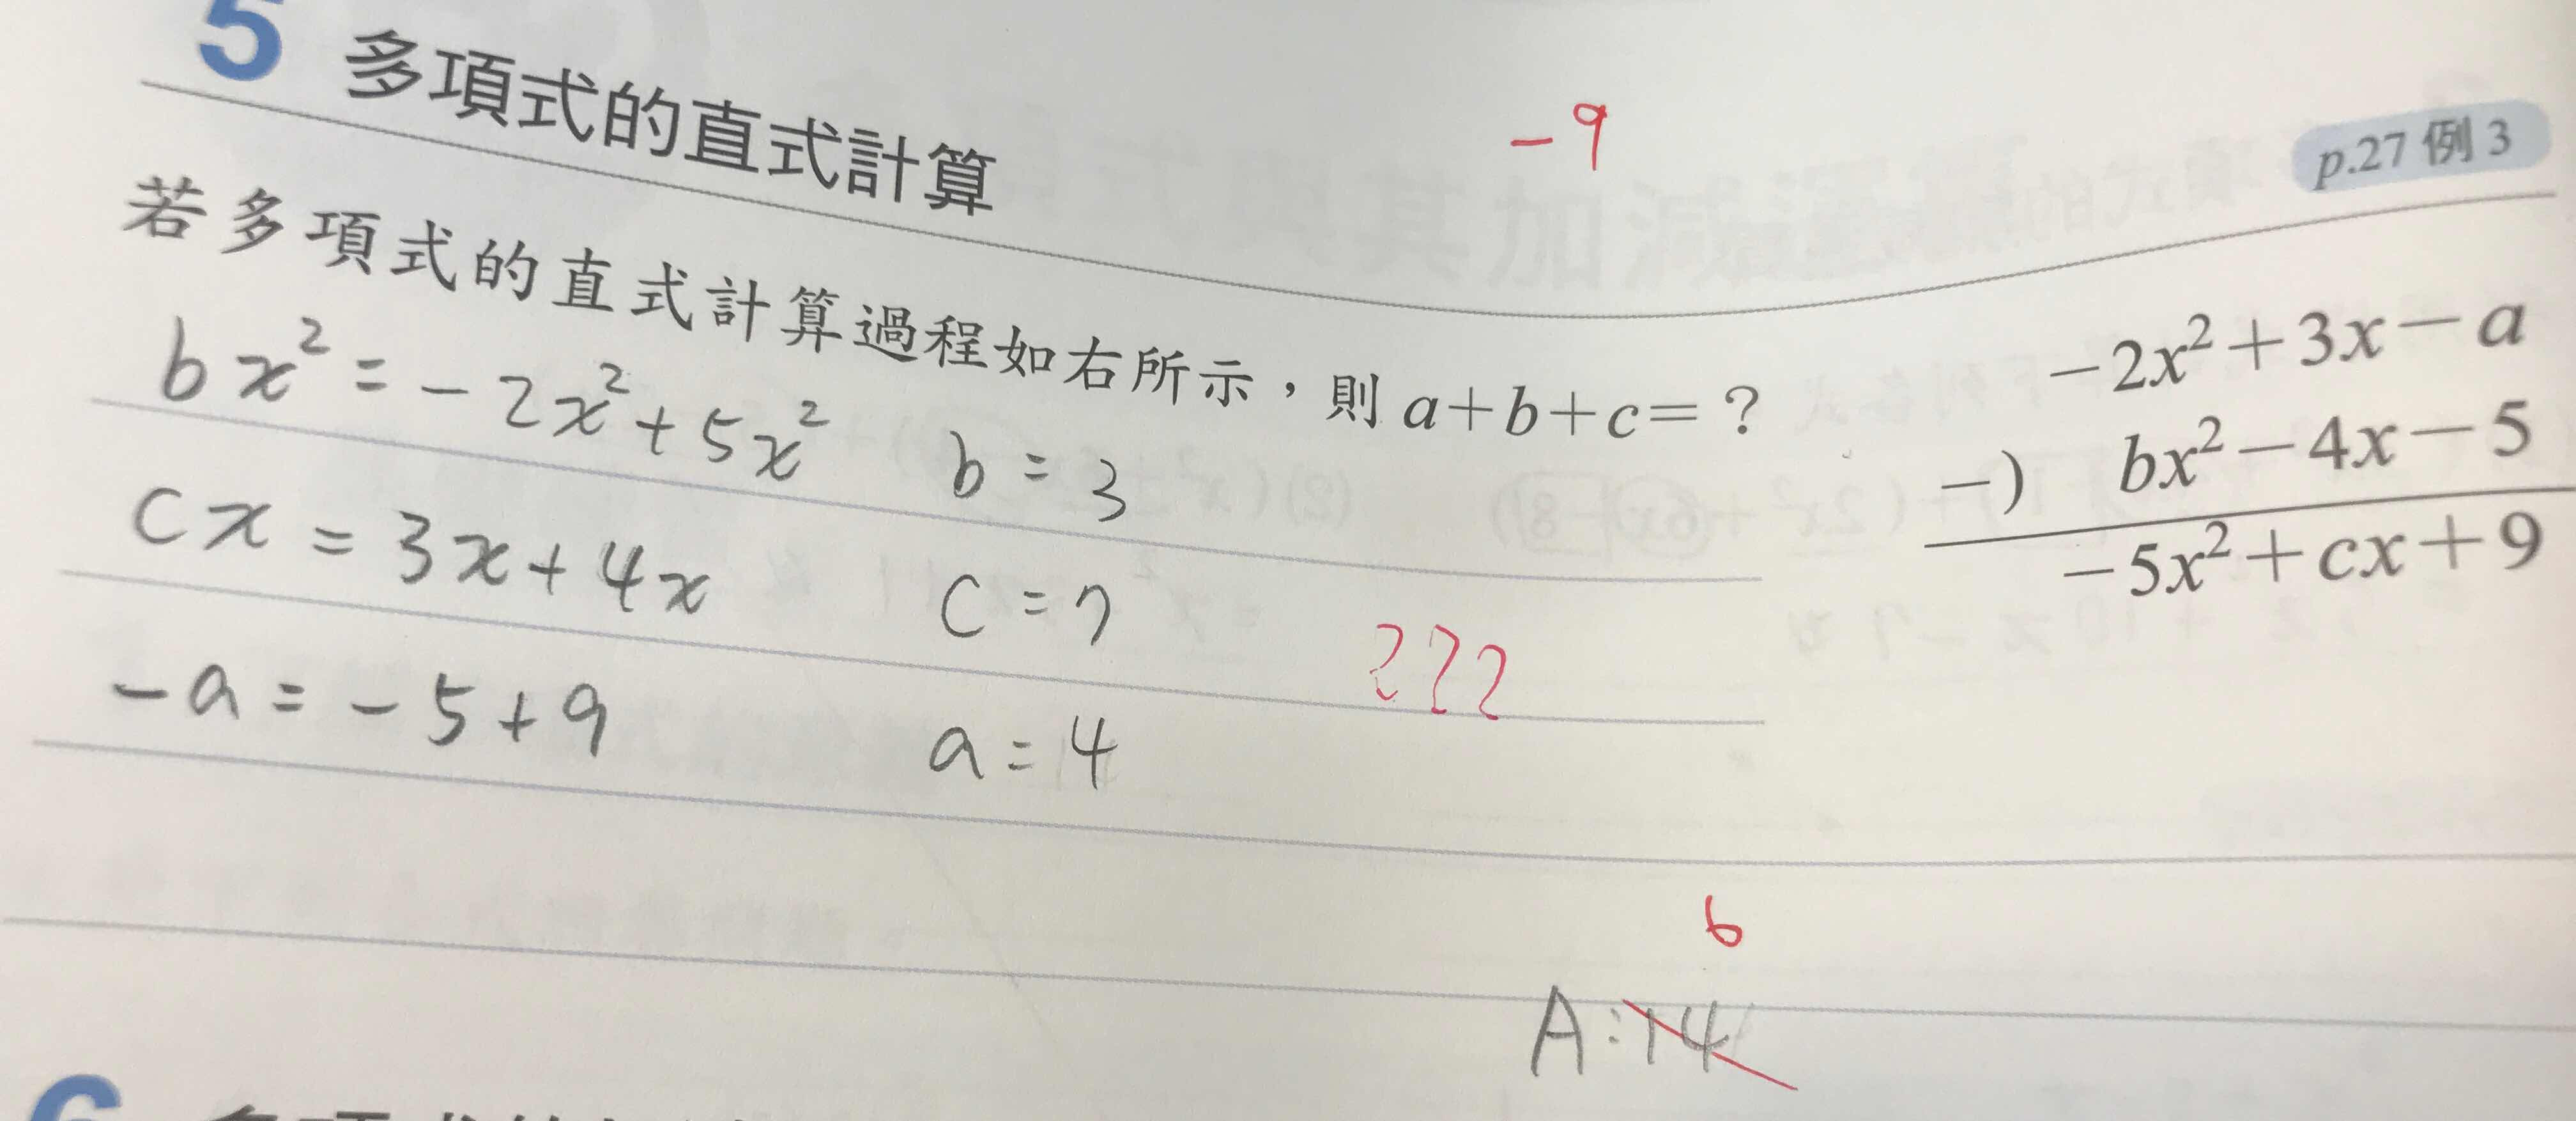 5 多項式的直式計算
-9
p.27 例 3
若多項式的直式計算過程如右所示，則 a+b+c=？
-2x²+3x-a
-) bx²-4x-5
-5x²+cx+9
bx² = -2x²+5x² b = 3
cx = 3x+4x c = 7
???
-a = -5+9 a = 4
6
A:14
6